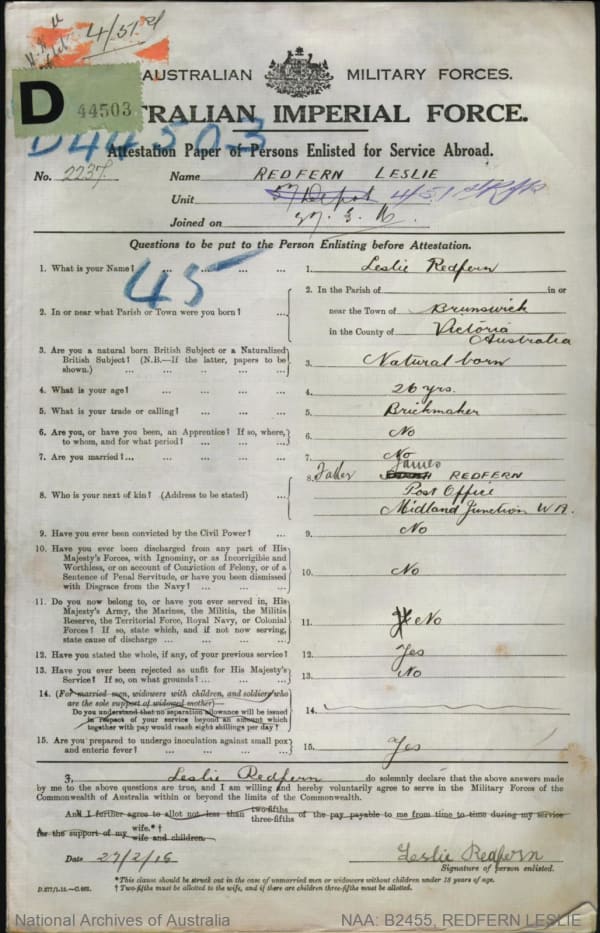 4/51st
AUSTRALIAN MILITARY FORCES.
D 44503
AUSTRALIAN IMPERIAL FORCE.
D44503
Attestation Paper of Persons Enlisted for Service Abroad.
No. 2237 Name REDFERN LESLIE
Unit Depot 4/51st
Joined on
Questions to be put to the Person Enlisting before Attestation.
45
1. What is your Name? ... ... ... ... 1. Leslie Redfern
2. In or near what Parish or Town were you born? ... 2. In the Parish of in or
near the Town of Brunswick
in the County of Victoria
Australia
3. Are you a natural born British Subject or a Naturalized
British Subject? (N.B.—If the latter, papers to be
shown.) ... ... ... ... 3. Natural born
4. What is your age? ... ... ... ... 4. 26 yrs.
5. What is your trade or calling? ... ... ... 5. Brickmaker
6. Are you, or have you been, an Apprentice? If so, where,
to whom, and for what period? ... ... ... 6. No
7. Are you married?... ... ... ... ... 7. No
8. Who is your next of kin? (Address to be stated) ... 8. Father James REDFERN
Post Office
Midland Junction W.A.
9. Have you ever been convicted by the Civil Power? ... 9. No
10. Have you ever been discharged from any part of His
Majesty's Forces, with Ignominy, or as Incorrigible and
Worthless, or on account of Conviction of Felony, or of a
Sentence of Penal Servitude, or have you been dismissed
with Disgrace from the Navy? ... ... ... 10. No
11. Do you now belong to, or have you ever served in, His
Majesty's Army, the Marines, the Militia, the Militia
Reserve, the Territorial Force, Royal Navy, or Colonial
Forces? If so, state which, and if not now serving,
state cause of discharge ... ... ... 11. No
12. Have you stated the whole, if any, of your previous service? 12. Yes
13. Have you ever been rejected as unfit for His Majesty's
Service? If so, on what grounds? ... ... ... 13. No
14. (For married men, widowers with children, and soldiers who
are the sole support of widowed mother)—
Do you understand that no separation allowance will be issued
in respect of your service beyond an amount which
together with pay would reach eight shillings per day? 14.
15. Are you prepared to undergo inoculation against small pox
and enteric fever? ... ... ... ... 15. Yes
I, Leslie Redfern do solemnly declare that the above answers made
by me to the above questions are true, and I am willing and hereby voluntarily agree to serve in the Military Forces of the
Commonwealth of Australia within or beyond the limits of the Commonwealth.
And I further agree to allot not less than two-fifths
three-fifths of the pay payable to me from time to time during my service
for the support of my wife.*†
wife and children.
Date 27/2/16 Leslie Redfern
Signature of person enlisted.
*This clause should be struck out in the case of unmarried men or widowers without children under 18 years of age.
† Two-fifths must be allotted to the wife, and if there are children three-fifths must be allotted.
National Archives of Australia NAA: B2455, REDFERN LESLIE